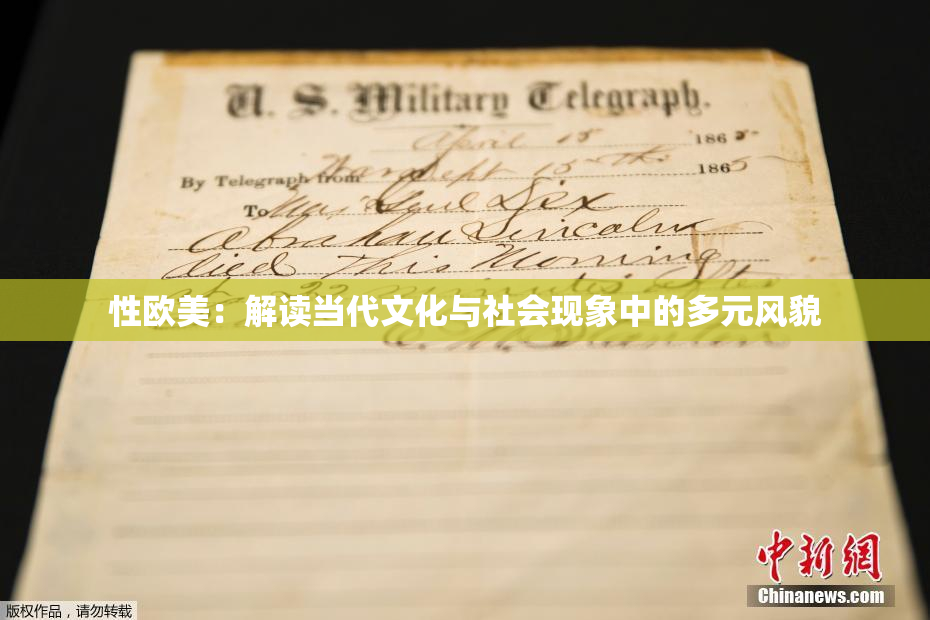 U. S. Military Telegraph.
April 15 1865
By Telegraph from War Dept 15th 1865
To Maj Genl Dix
Abraham Lincoln
died This Morning
at 22 minutes after
性欧美：解读当代文化与社会现象中的多元风貌
中新网
Chinanews.com
版权作品，请勿转载